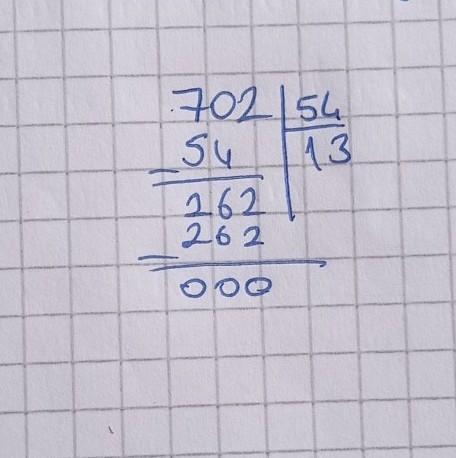 702 54
54 13
262
262
000